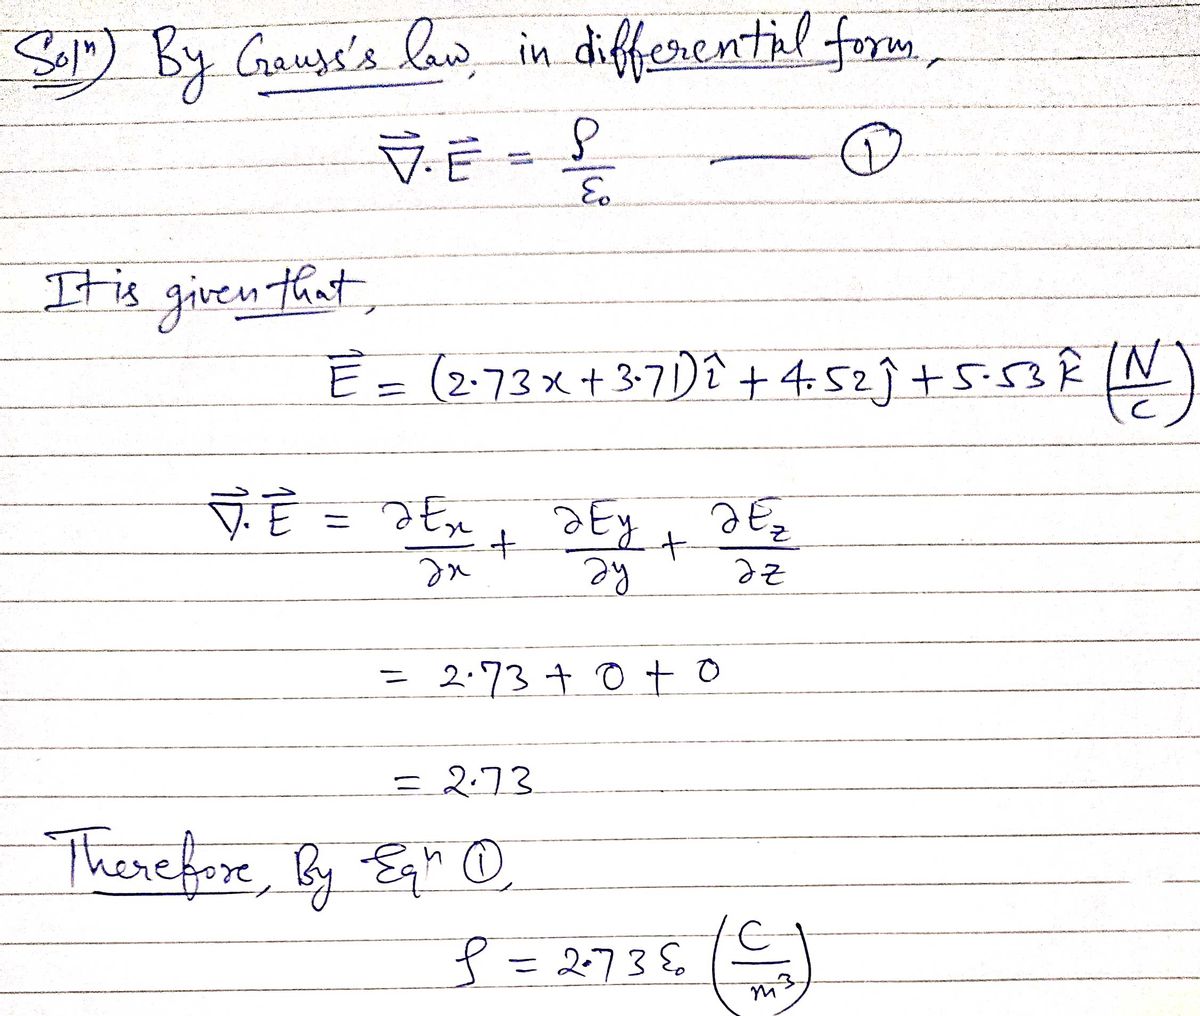 Solⁿ) By Gauss's law, in differential form,
∇⃗.E⃗ = ρ/ε₀ —— ①
It is given that,
E⃗ = (2.73x + 3.71)î + 4.52ĵ + 5.53k̂ (N/C)
∇⃗.E⃗ = ∂Ex/∂x + ∂Ey/∂y + ∂Ez/∂z
= 2.73 + 0 + 0
= 2.73
Therefore, By Eqⁿ ①,
ρ = 2.73 ε₀ (C/m³)